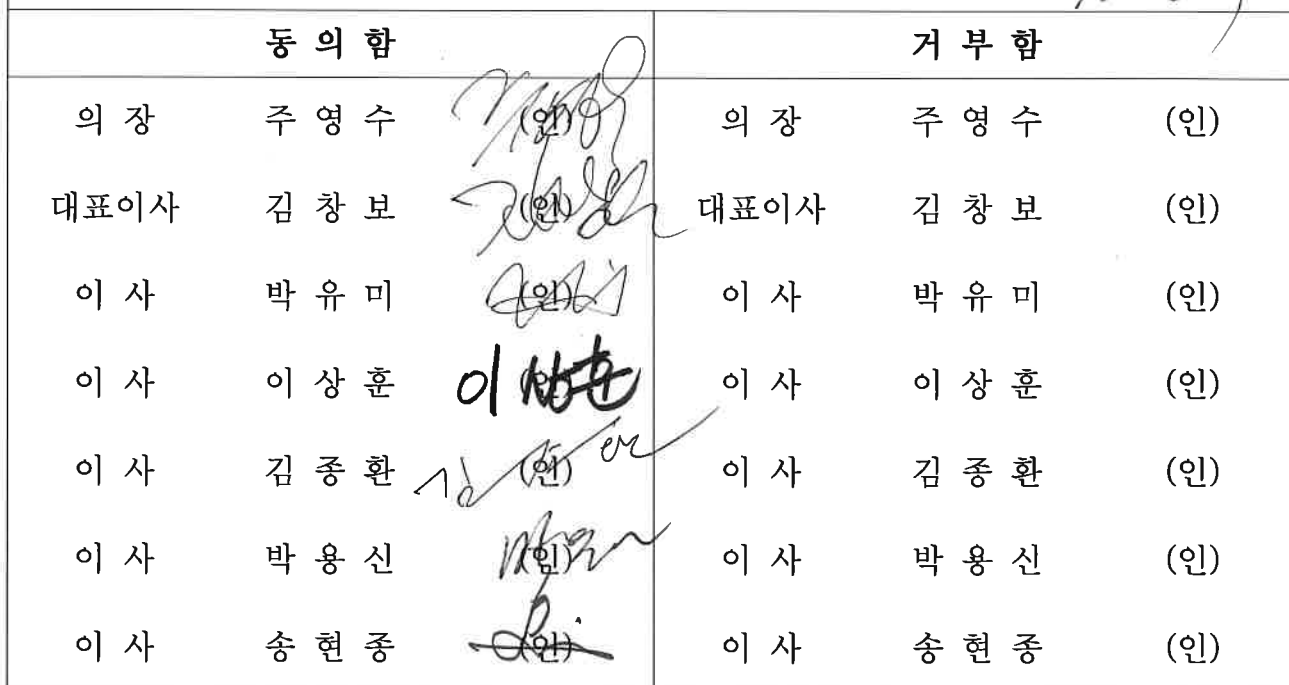 동 의 함 거 부 함
의 장 주 영 수 (인) 의 장 주 영 수 (인)
대표이사 김 창 보 (인) 대표이사 김 창 보 (인)
이 사 박 유 미 (인) 이 사 박 유 미 (인)
이 사 이 상 훈 이상훈 (인) 이 사 이 상 훈 (인)
이 사 김 종 환 (인) 이 사 김 종 환 (인)
이 사 박 용 신 (인) 이 사 박 용 신 (인)
이 사 송 현 종 (인) 이 사 송 현 종 (인)